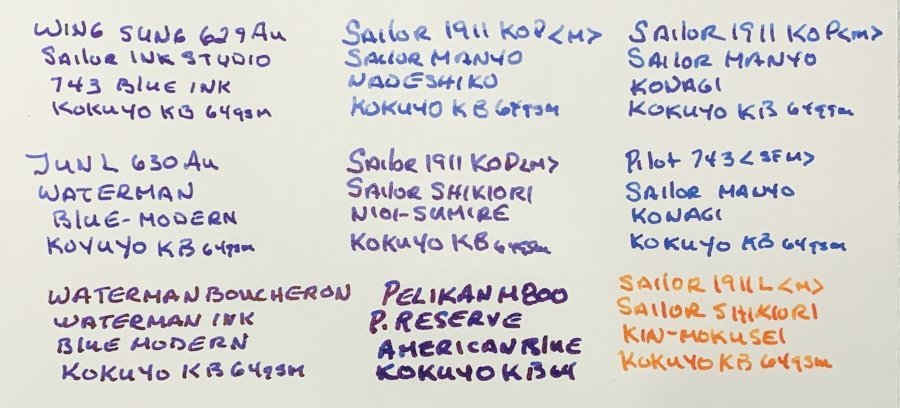 WING SUNG 629 Au
Sailor INK STUDIO
743 BLUE INK
KOKUYO KB 64gsm
Sailor 1911 KOP <M>
Sailor MANYO
NADESHIKO
KOKUYO KB 64gsm
Sailor 1911 KOP<M>
Sailor MANYO
KONAGI
KOKUYO KB 64gsm
JUNL 630 Au
WATERMAN
BLUE-MODERN
KOYUYO KB 64gsm
Sailor 1911 KOP<M>
Sailor SHIKIORI
NIOI-SUMIRE
KOKUYO KB 64gsm
Pilot 743 <SFM>
Sailor MANYO
KONAGI
KOKUYO KB 64gsm
WATERMAN BOUCHERON
WATERMAN INK
BLUE MODERN
KOKUYO KB 64gsm
PELIKAN M800
P. RESERVE
AMERICAN BLUE
KOKUYO KB 64
SAILOR 1911L <M>
SAILOR SHIKIORI
KIN-MOKUSEI
KOKUYO KB 64gsm